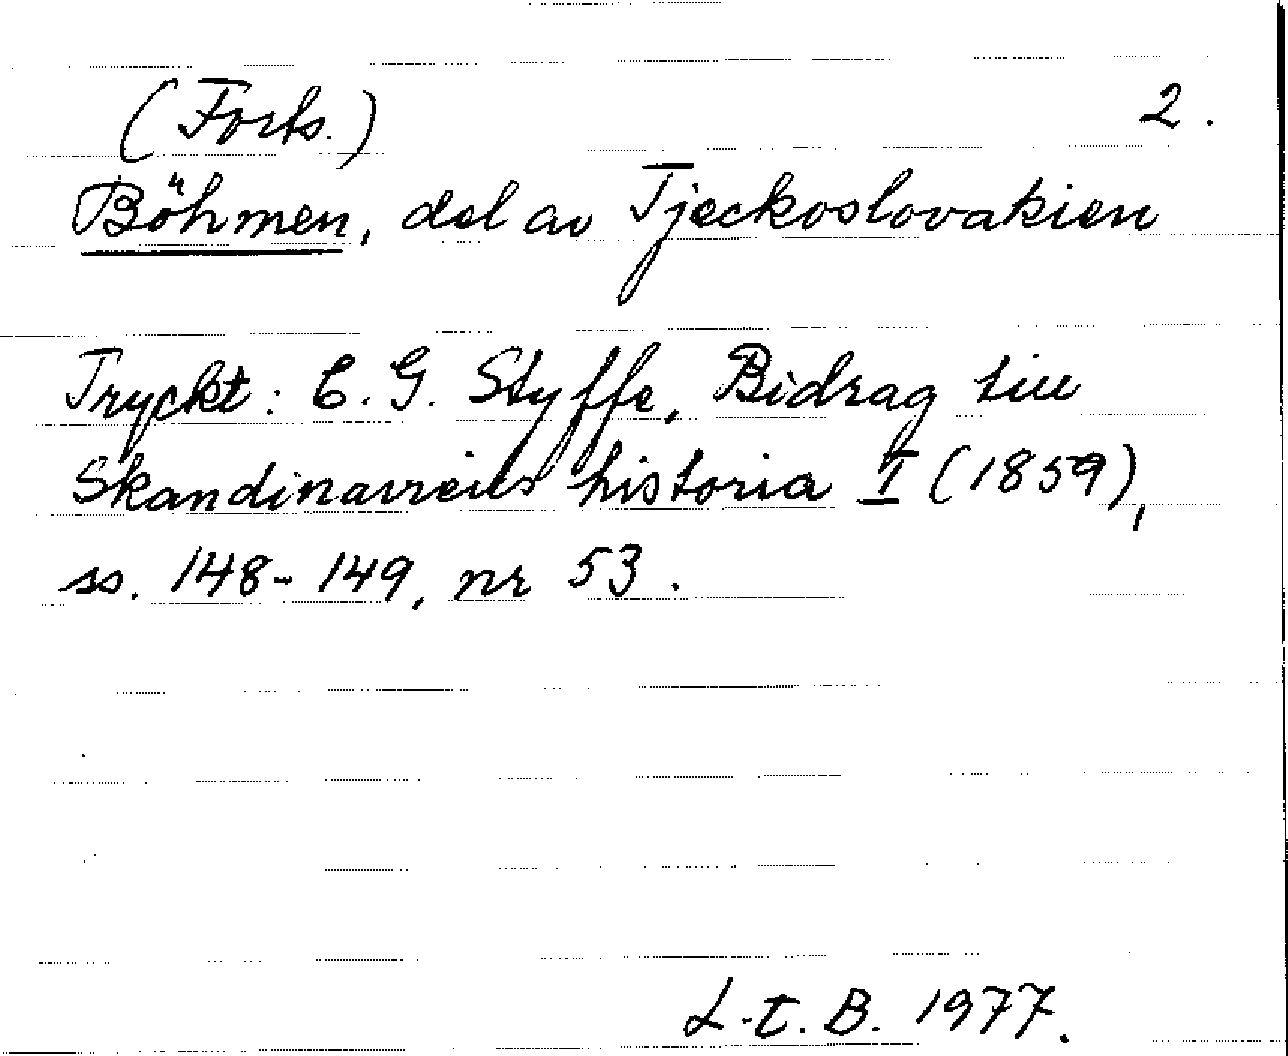 (Forts.) 2.
Böhmen, del av Tjeckoslovakien
Tryckt: C. G. Styffe, Bidrag till
Skandinaviens historia I (1859),
ss. 148-149, nr 53.
L.t.B. 1977.